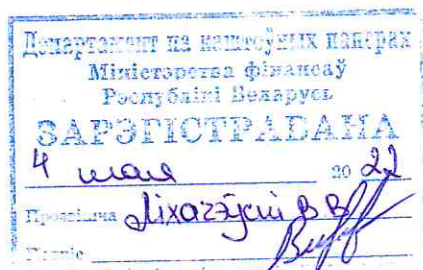 Дэпартамент па каштоўных паперах
Міністэрства фінансаў
Рэспублікі Беларусь
ЗАРЭГІСТРАВАНА
4 мая 2022
Прозвішча Ліхачэўскі В В
Подпіс